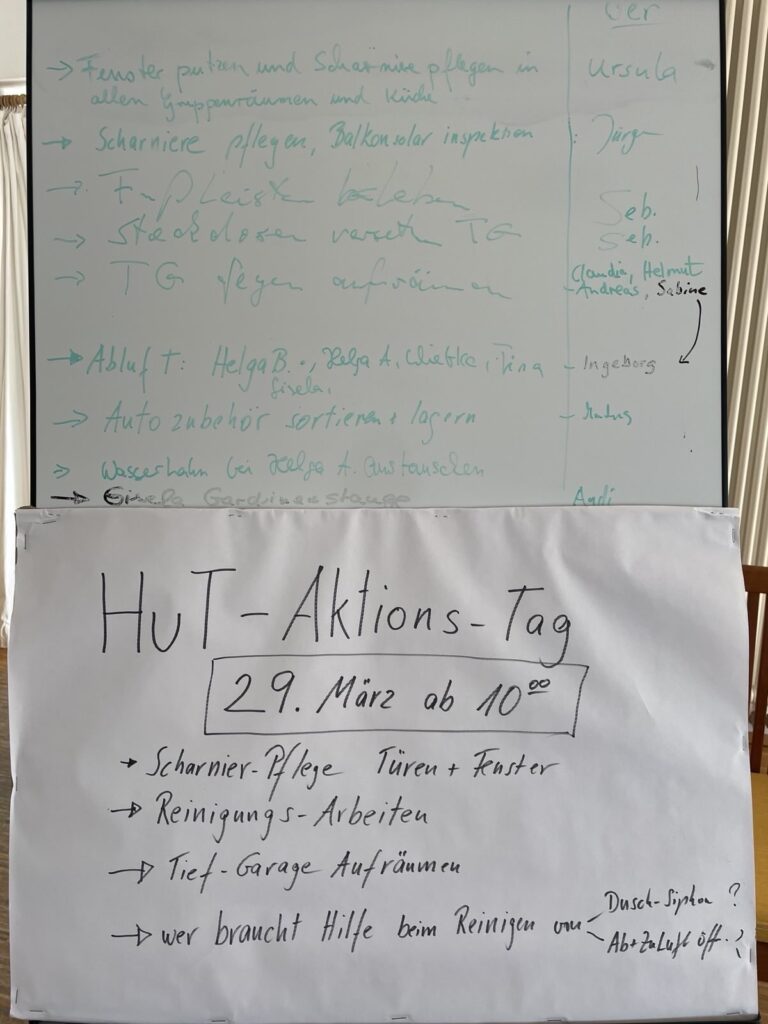 Wer
→ Fenster putzen und Scharniere pflegen in Ursula
allen Gruppenräumen und Küche
→ Scharniere pflegen, Balkonsolar inspektion : Jürgen
→ Fußleisten Seb.
→ Steckdosen versetzen TG Seb.
→ TG fegen aufräumen Claudia, Helmut
- Andreas, Sabine
→ Abluft: Helga B., Helga A, Wiebke, Tina - Ingeborg
Gisela,
→ Autozubehör sortieren + lagern
→ Wasserhahn bei Helga A. austauschen
→ Gisela Gardinenstange Andi
HuT-Aktions-Tag
29. März ab 10⁰⁰
→ Scharnier-Pflege Türen + Fenster
→ Reinigungs-Arbeiten
→ Tief-Garage Aufräumen
→ wer braucht Hilfe beim Reinigen von Dusch-Siphon ?
Ab+Zuluft öff. ?